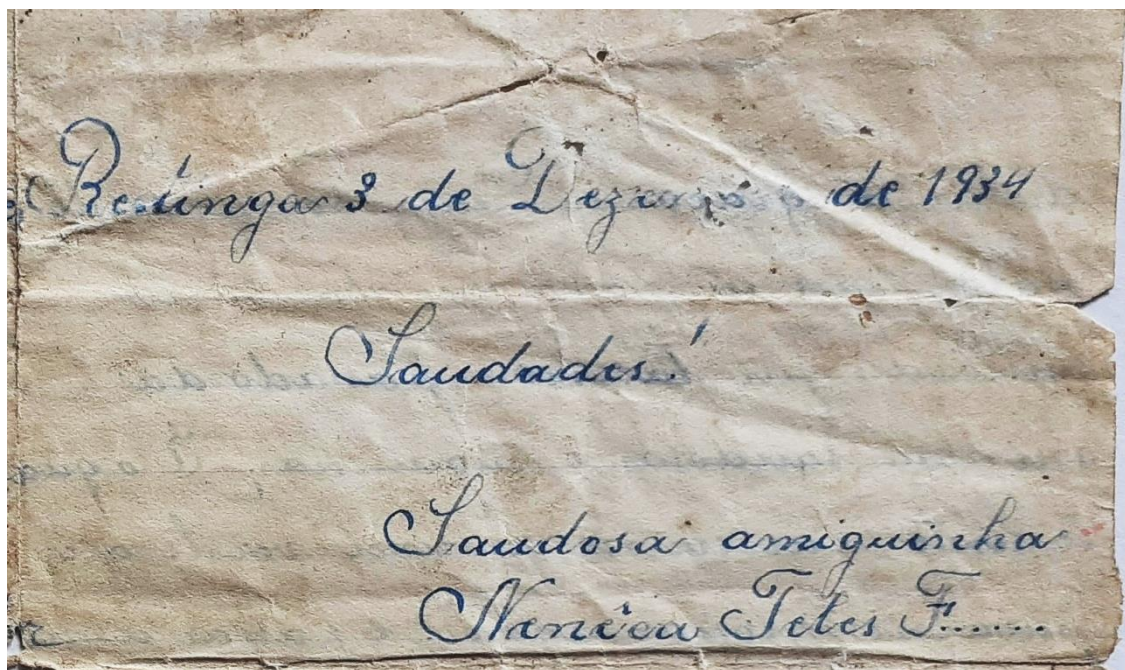 Redinga 3 de Dezembro de 1934
Saudades!
Saudosa amiguinha
Nenêca Teles F......